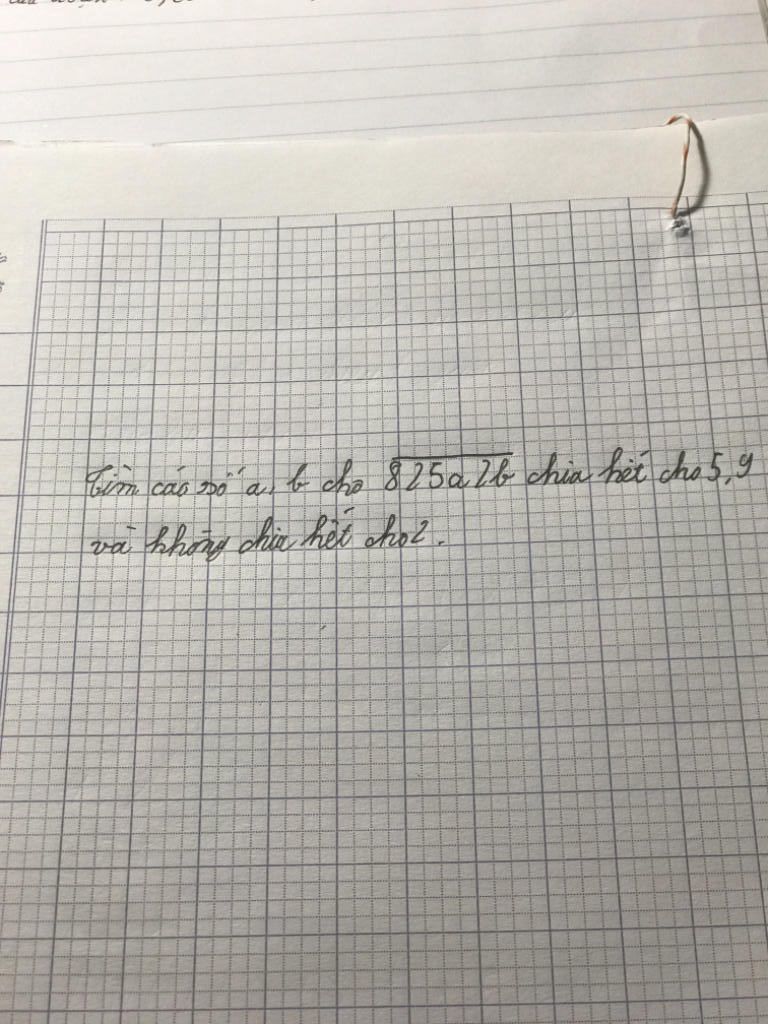 Tìm các số a, b cho 825a2b chia hết cho 5, 9
và không chia hết cho 2.